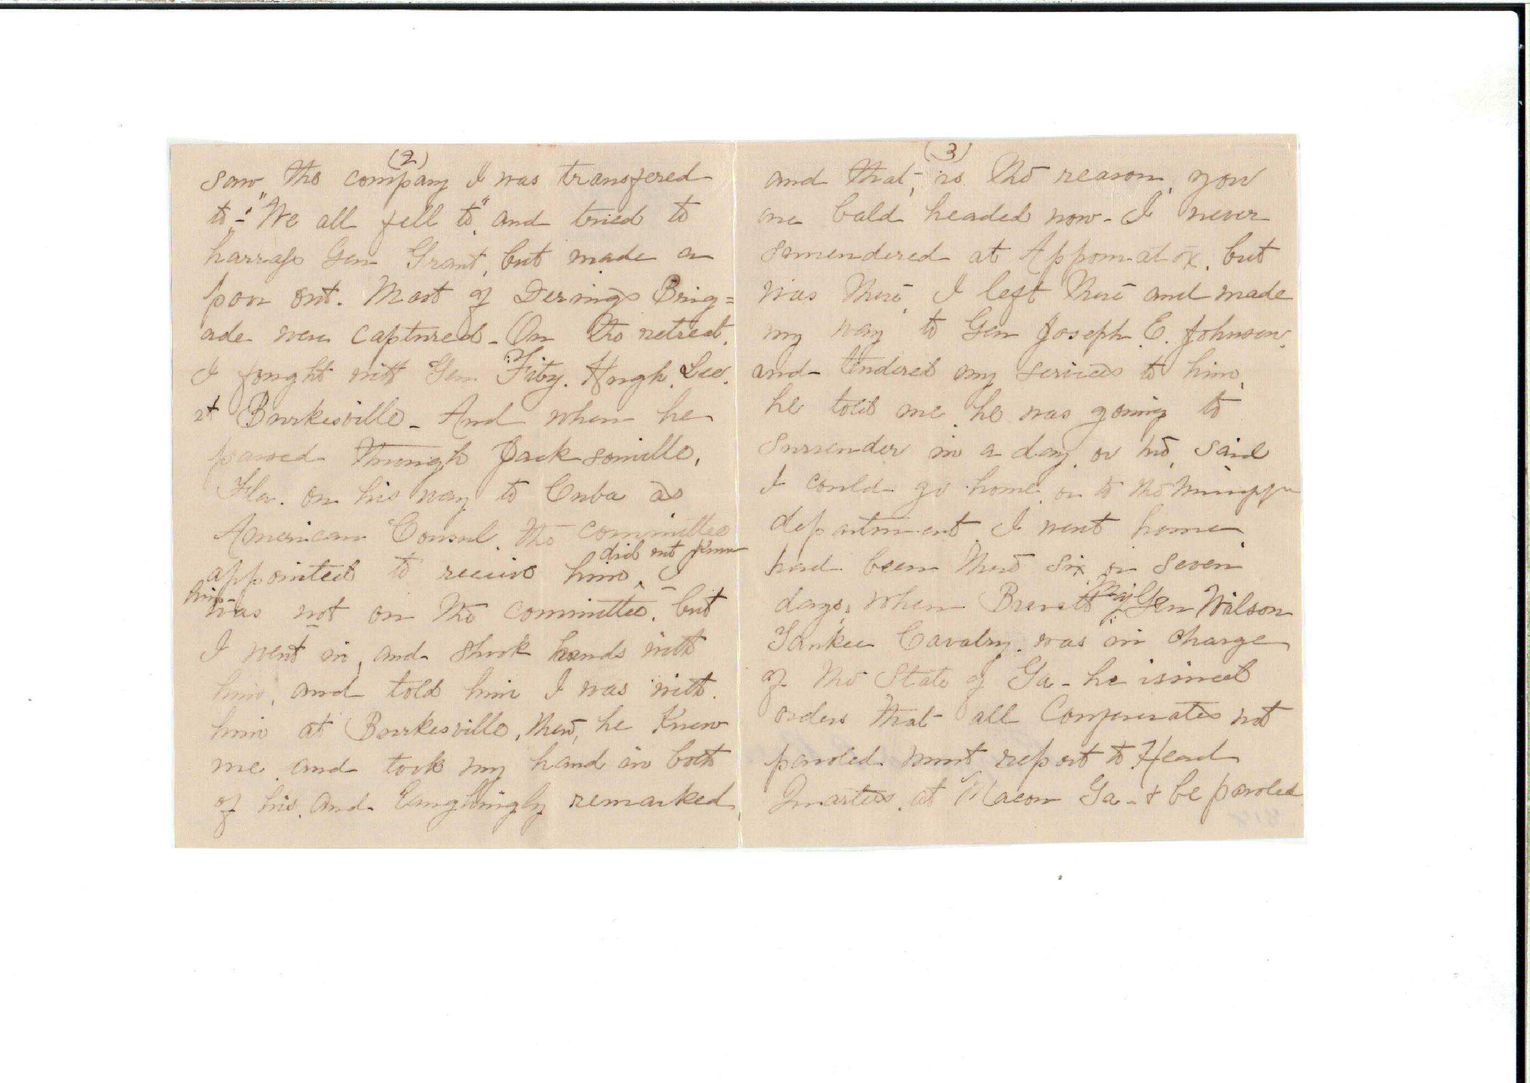 (2)
saw, the company I was transfered
to - "We all fell to," and tried to
harrass Gen Grant, but made a
poor out. Most of Derings Brig=
ade were captured - On the retreat,
I fought with Gen Fitz. Hugh. Lee.
at Burkesville - And when he
passed through Jacksonville,
Fla. on his way to Cuba as
American Consul. the committee
appointed to receive him, did not know
him I
was not on the committee. but
I went in, and shook hands with
him, and told him I was with
him at Burkesville, then, he knew
me and took my hand in both
of his. and laughingly remarked
(3)
and that, is the reason, you
are bald headed now - I never
surrendered at Appomatox. but
was there, I left there and made
my way to Gen Joseph. E. Johnson.
and tendered my services to him,
he told me he was going to
surrender in a day or two, said
I could go home or to the Mississippi
department. I went home
had been there six or seven
days, when Brevett Maj Gen Wilson
Yankee Cavalry. was in charge
of the State of Ga - he issued
orders that all Confederates not
paroled must report to Head
Quarters. at Macon Ga - & be paroled